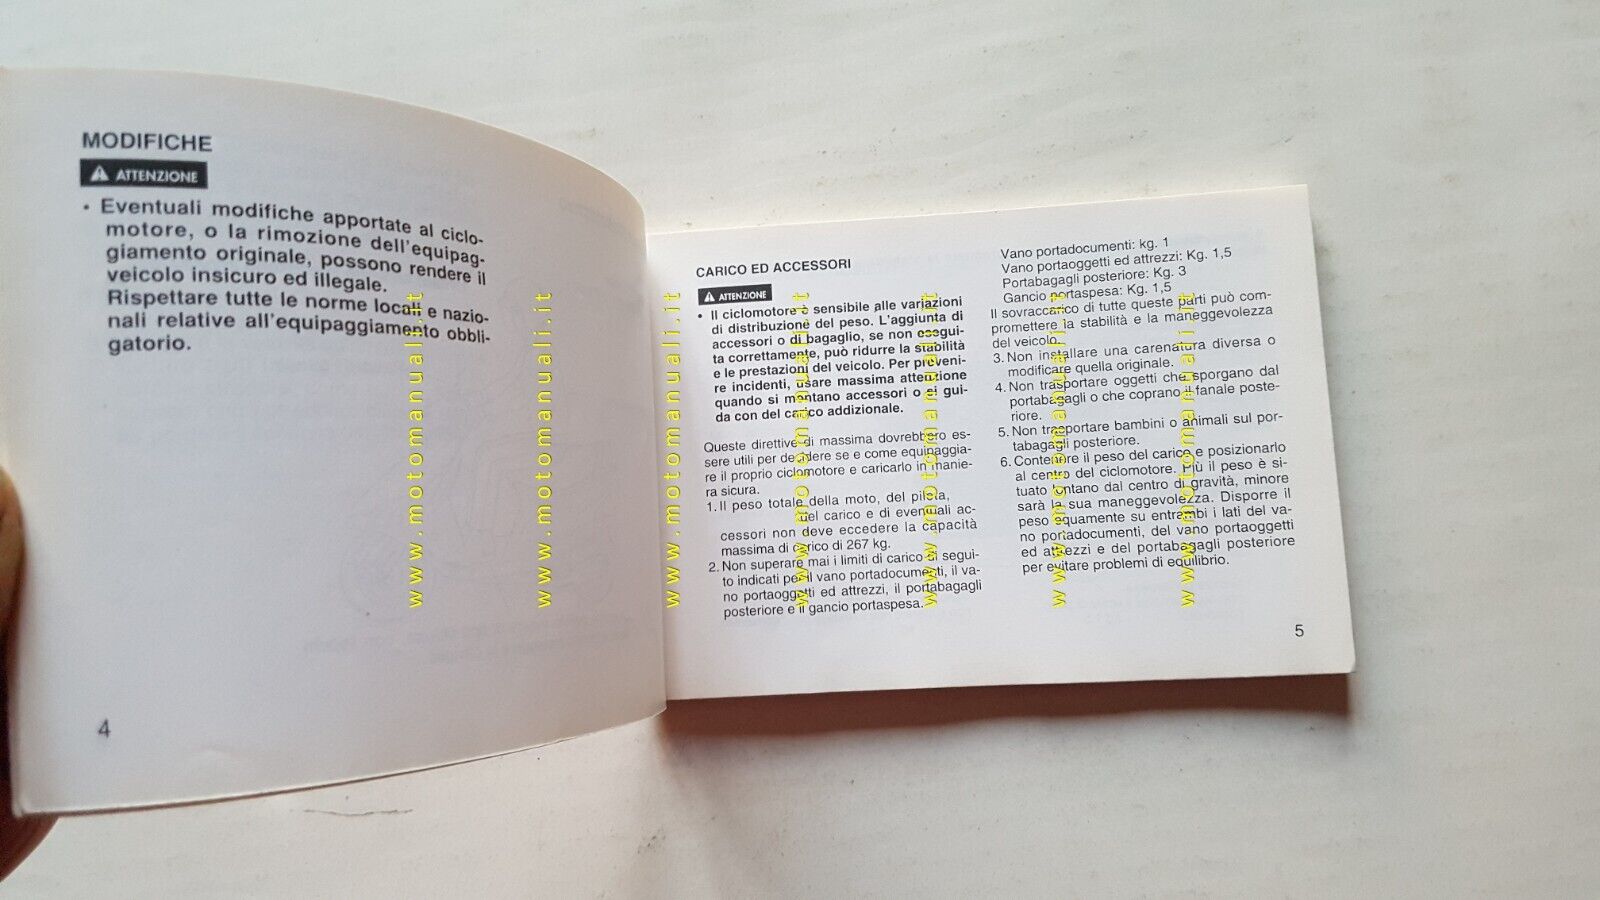 MODIFICHE
ATTENZIONE
• Eventuali modifiche apportate al ciclo-
motore, o la rimozione dell'equipag-
giamento originale, possono rendere il
veicolo insicuro ed illegale.
Rispettare tutte le norme locali e nazio-
nali relative all'equipaggiamento obbli-
gatorio.
4
CARICO ED ACCESSORI
ATTENZIONE
• Il ciclomotore è sensibile alle variazioni
di distribuzione del peso. L'aggiunta di
accessori o di bagaglio, se non esegui-
ta correttamente, può ridurre la stabilità
e le prestazioni del veicolo. Per preveni-
re incidenti, usare massima attenzione
quando si montano accessori o si gui-
da con del carico addizionale.
Queste direttive di massima dovrebbero es-
sere utili per decidere se e come equipaggia-
re il proprio ciclomotore e caricarlo in manie-
ra sicura.
1. Il peso totale della moto, del pilota,
del carico e di eventuali ac-
cessori non deve eccedere la capacità
massima di carico di 267 kg.
2. Non superare mai i limiti di carico di segui-
to indicati per il vano portadocumenti, il va-
no portaoggetti ed attrezzi, il portabagagli
posteriore e il gancio portaspesa.
Vano portadocumenti: kg. 1
Vano portaoggetti ed attrezzi: Kg. 1,5
Portabagagli posteriore: Kg. 3
Gancio portaspesa: Kg. 1,5
Il sovraccarico di tutte queste parti può com-
promettere la stabilità e la maneggevolezza
del veicolo.
3. Non installare una carenatura diversa o
modificare quella originale.
4. Non trasportare oggetti che sporgano dal
portabagagli o che coprano il fanale poste-
riore.
5. Non trasportare bambini o animali sul por-
tabagagli posteriore.
6. Contenere il peso del carico e posizionarlo
al centro del ciclomotore. Più il peso è si-
tuato lontano dal centro di gravità, minore
sarà la sua maneggevolezza. Disporre il
peso equamente su entrambi i lati del va-
no portadocumenti, del vano portaoggetti
ed attrezzi e del portabagagli posteriore
per evitare problemi di equilibrio.
5
www.motomanuali.it
www.motomanuali.it
www.motomanuali.it
www.motomanuali.it
www.motomanuali.it
www.motomanuali.it
www.motomanuali.it